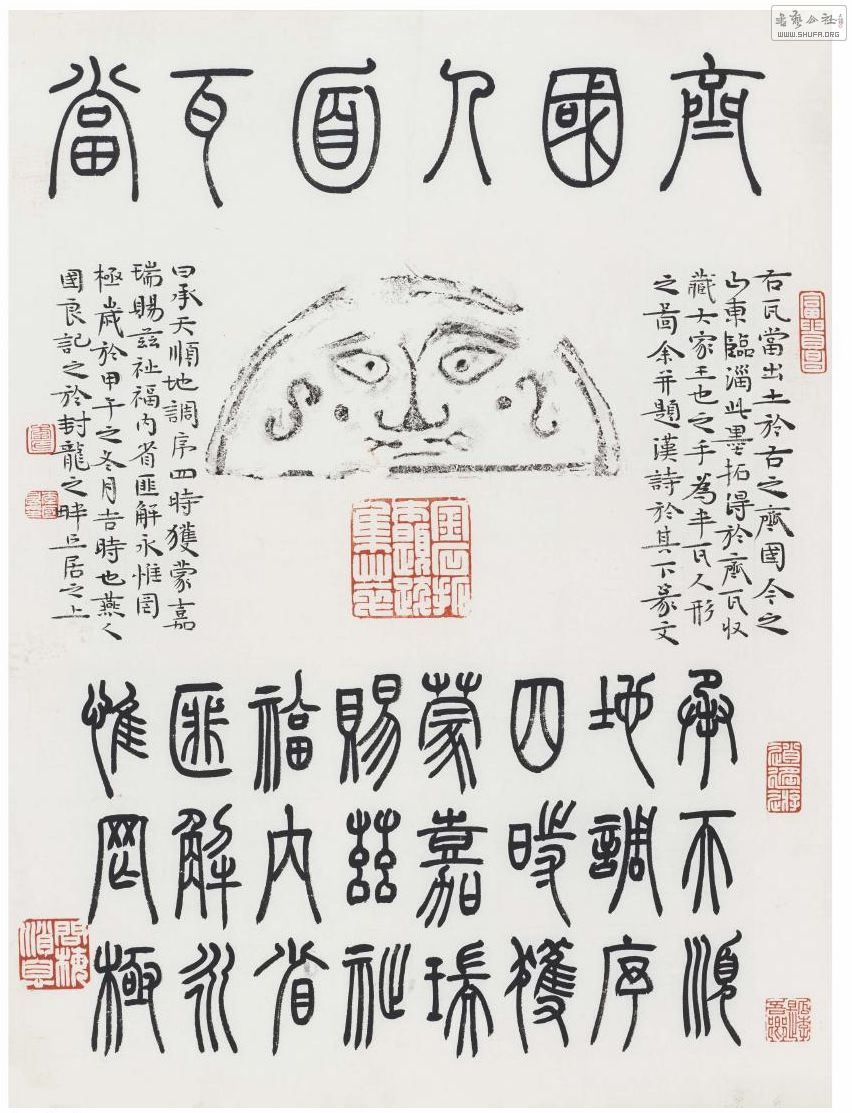 齊國人面瓦當
右瓦當出土於古之齊國今之
山東臨淄此墨拓得於齊瓦收
藏大家王也之手為半瓦人形
之啚余并題漢詩於其下篆文
曰承天順地調序四時獲蒙嘉
瑞賜茲祉福內省匪解永惟罔
極歲於甲午之冬月吉時也燕人
國良記之於封龍之畔丘居之上
金石拓
題跋
集萃
承天順
地調序
四時獲
蒙嘉瑞
賜茲祉
福內省
匪解永
惟罔極
問梅
消息
書藝公社
WWW.SHUFA.ORG